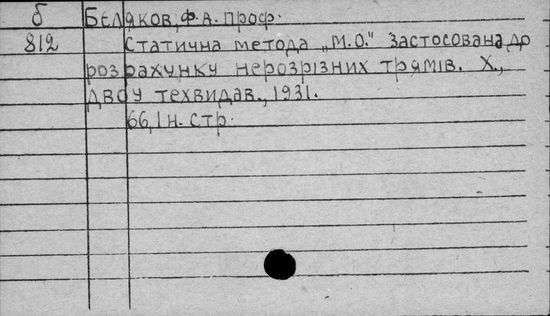 б Бєляков, Ф. А. проф.
812 Статична метода „М.О." застосована до
розрахунку нерозрізних трямів. Х.,
ДВОУ техвидав., 1931.
66, 1 н. стр.